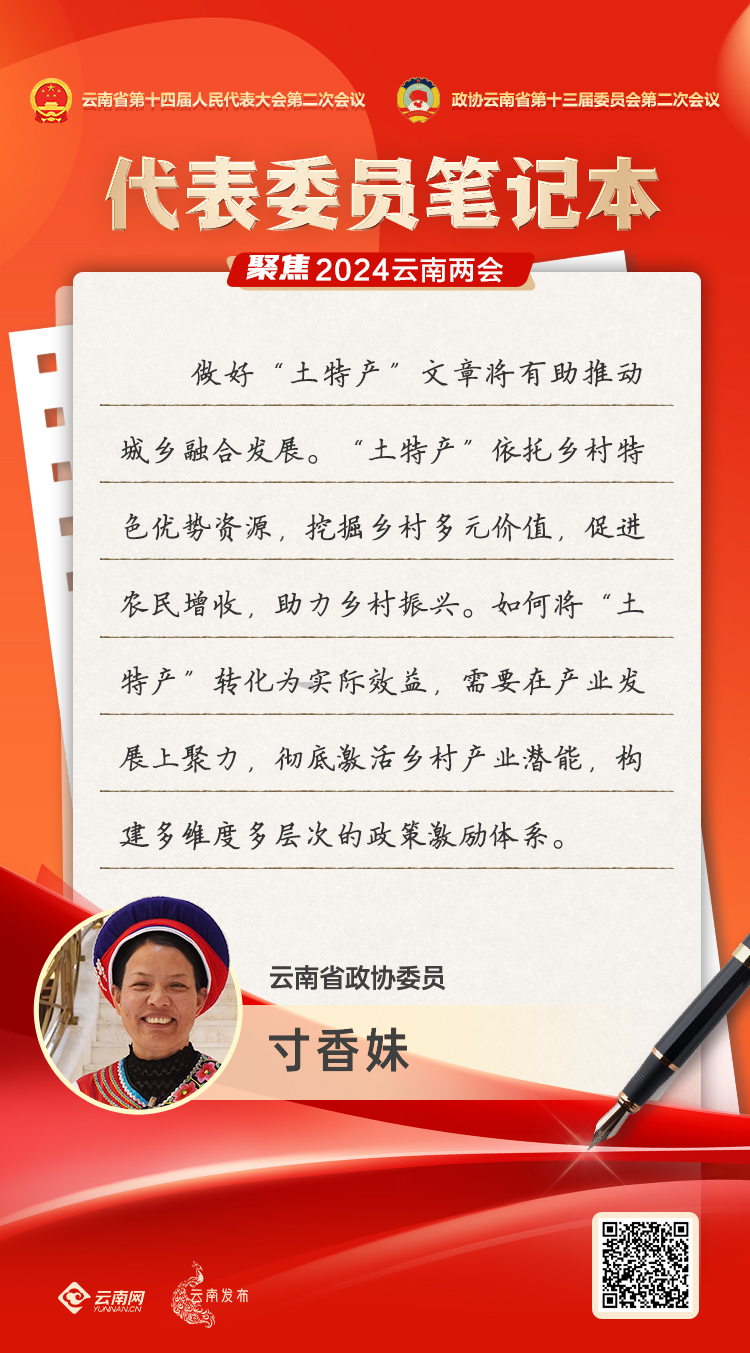 云南省第十四届人民代表大会第二次会议
政协云南省第十三届委员会第二次会议
代表委员笔记本
聚焦2024云南两会
做好“土特产”文章将有助推动
城乡融合发展。“土特产”依托乡村特
色优势资源，挖掘乡村多元价值，促进
农民增收，助力乡村振兴。如何将“土
特产”转化为实际效益，需要在产业发
展上聚力，彻底激活乡村产业潜能，构
建多维度多层次的政策激励体系。
云南省政协委员
寸香妹
云南网
YUNNAN.CN
云南发布